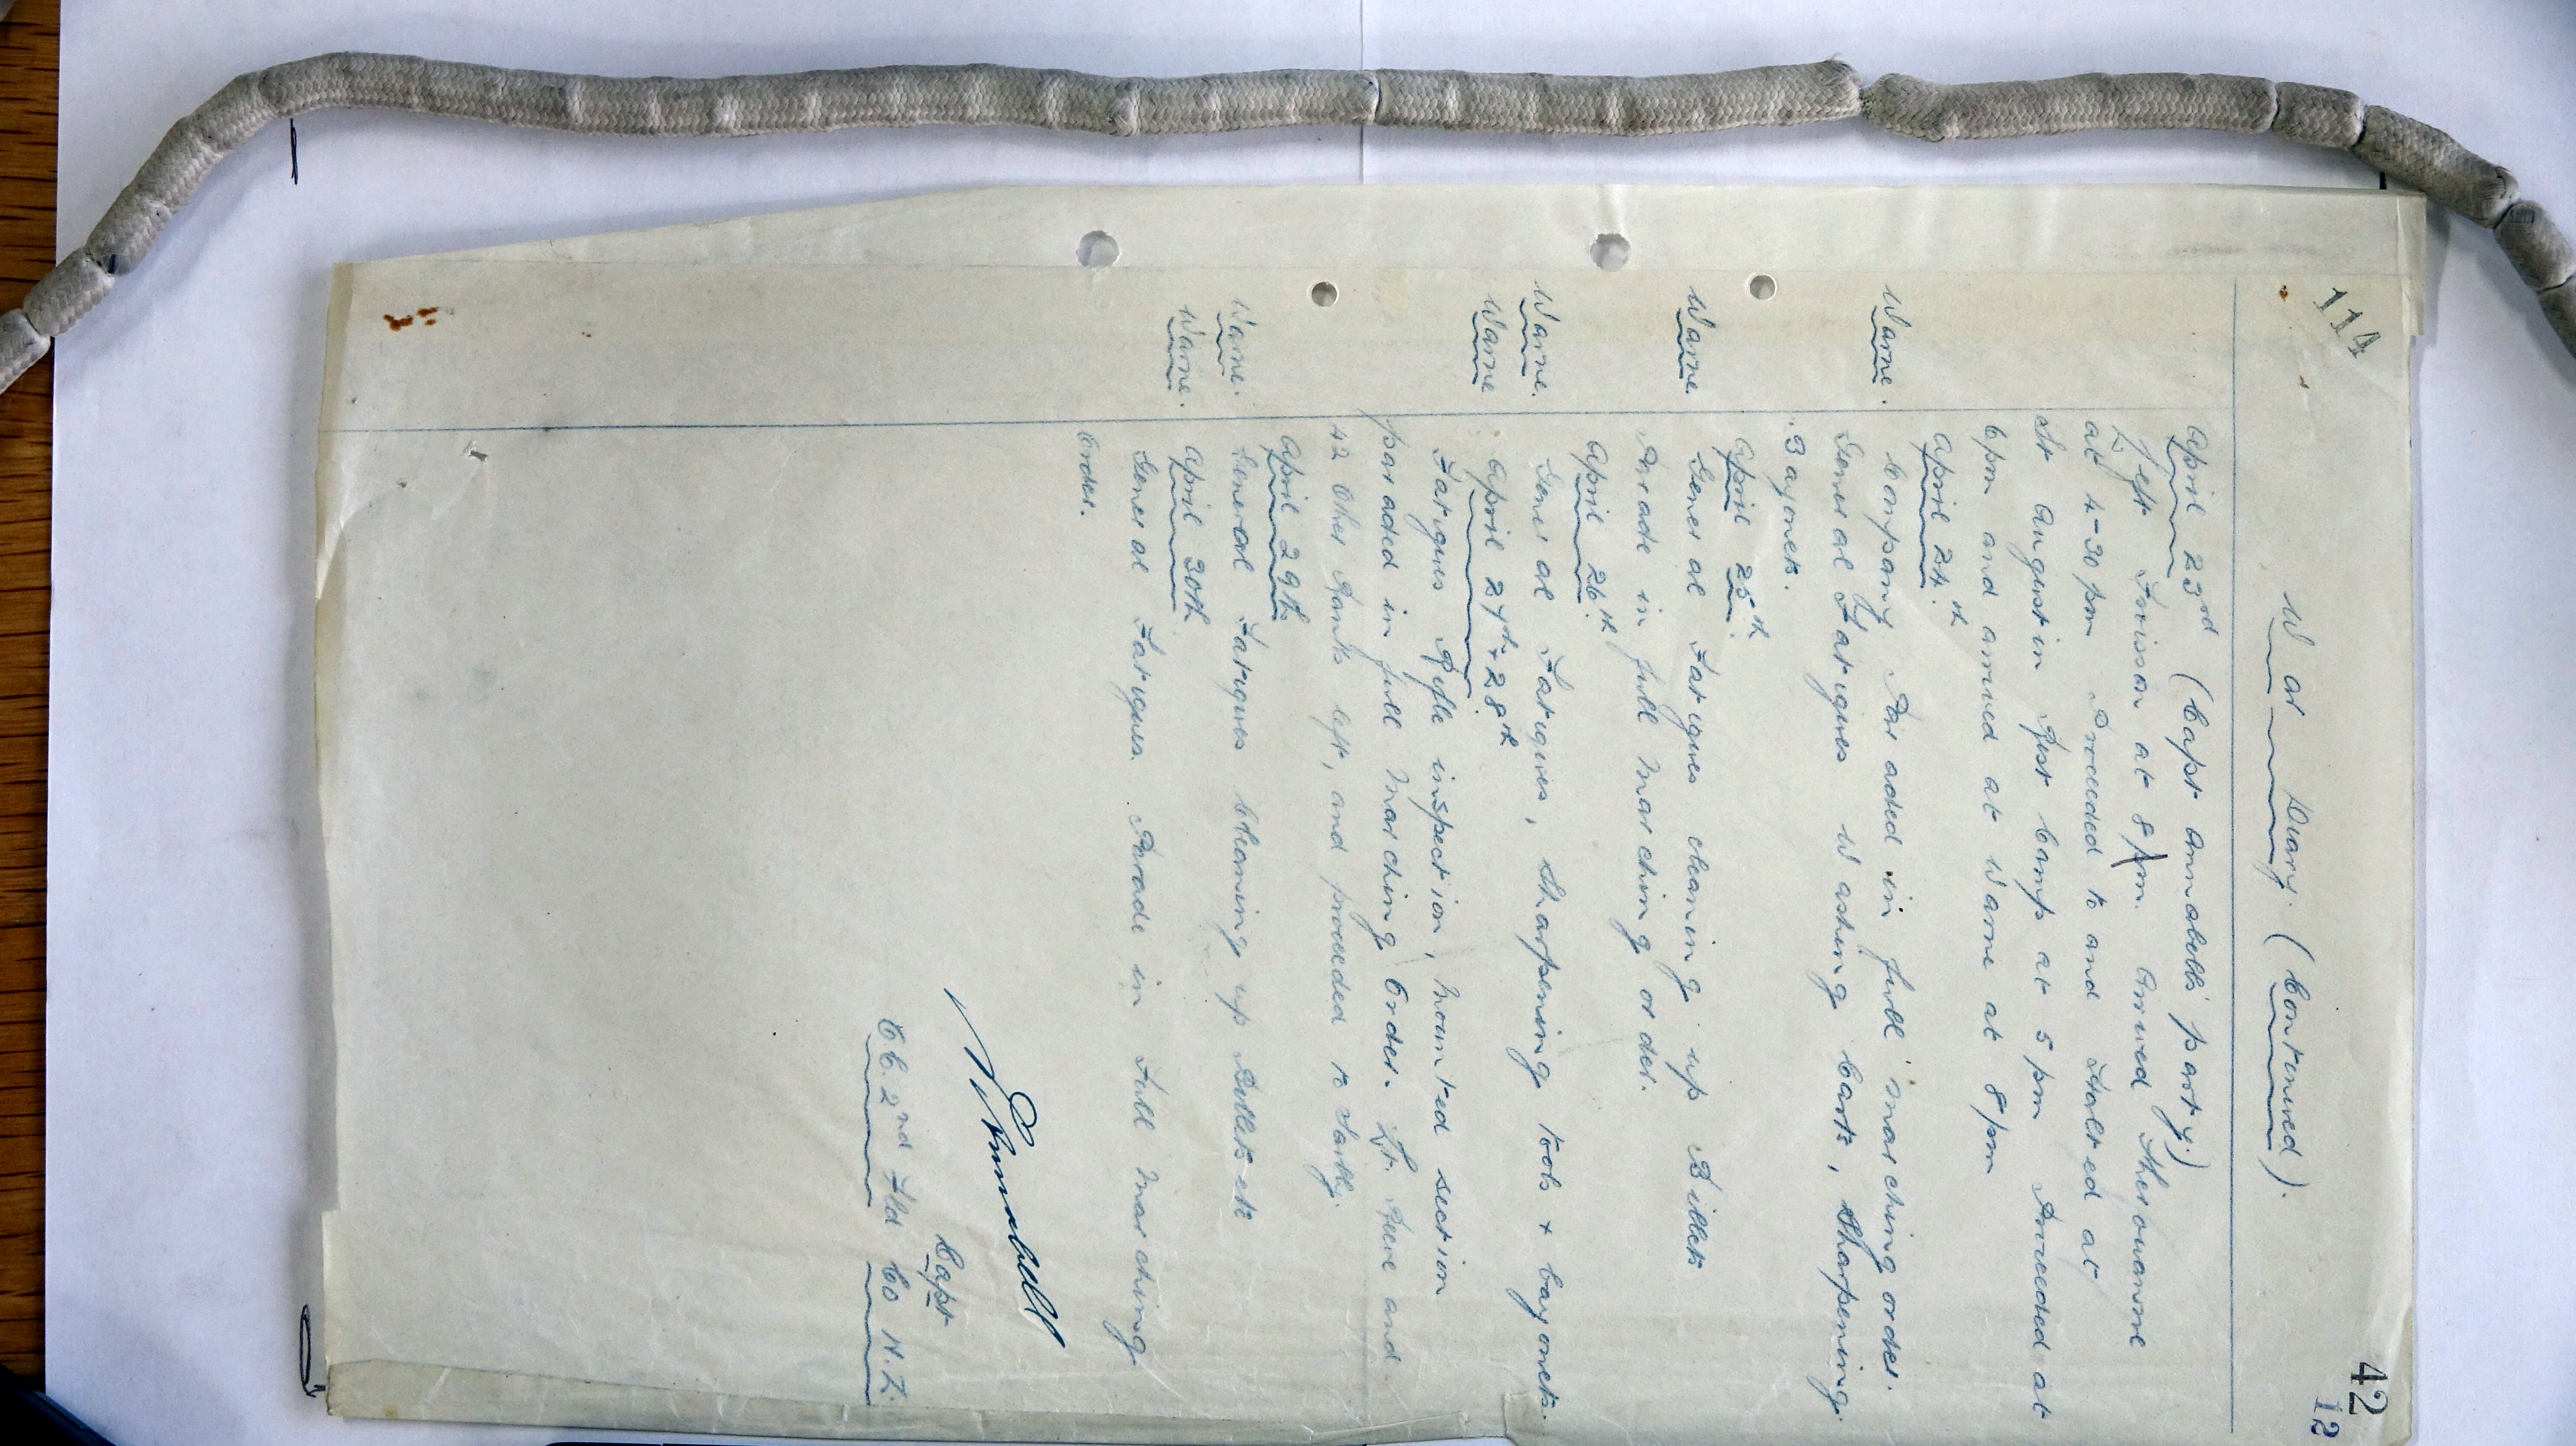 114
42
12
War Diary. (Continued).
April 23rd (Capt Annabells party.)
Left Frisson at 8 pm. Arrived Therouanne
at 4-30 pm Proceeded to and Halted at
St Augustin Rest Camp at 5 pm Proceeded at
6pm and arrived at Warne at 8 pm
April 24.th
Warne. Company Paraded in full marching order.
General Fatigues Washing Carts, Sharpening
Bayonets.
April 25th.
Warne. General Fatigues cleaning up Billets
Parade in full marching order.
April 26th
Warne. General Fatigues, Sharpening tools + bayonets.
Warne April 27th + 28th
Fatigues Rifle inspection, Mounted section
paraded in full Marching Order. Lt. and
42 Other Ranks left, and proceeded to
April 29th
Warne. General Fatigues Cleaning up Billets etc
Warne. April 30th
General Fatigues. Parade in Full Marching
Order.
Annabell
Capt
OC. 2nd Fld Co N.Z.